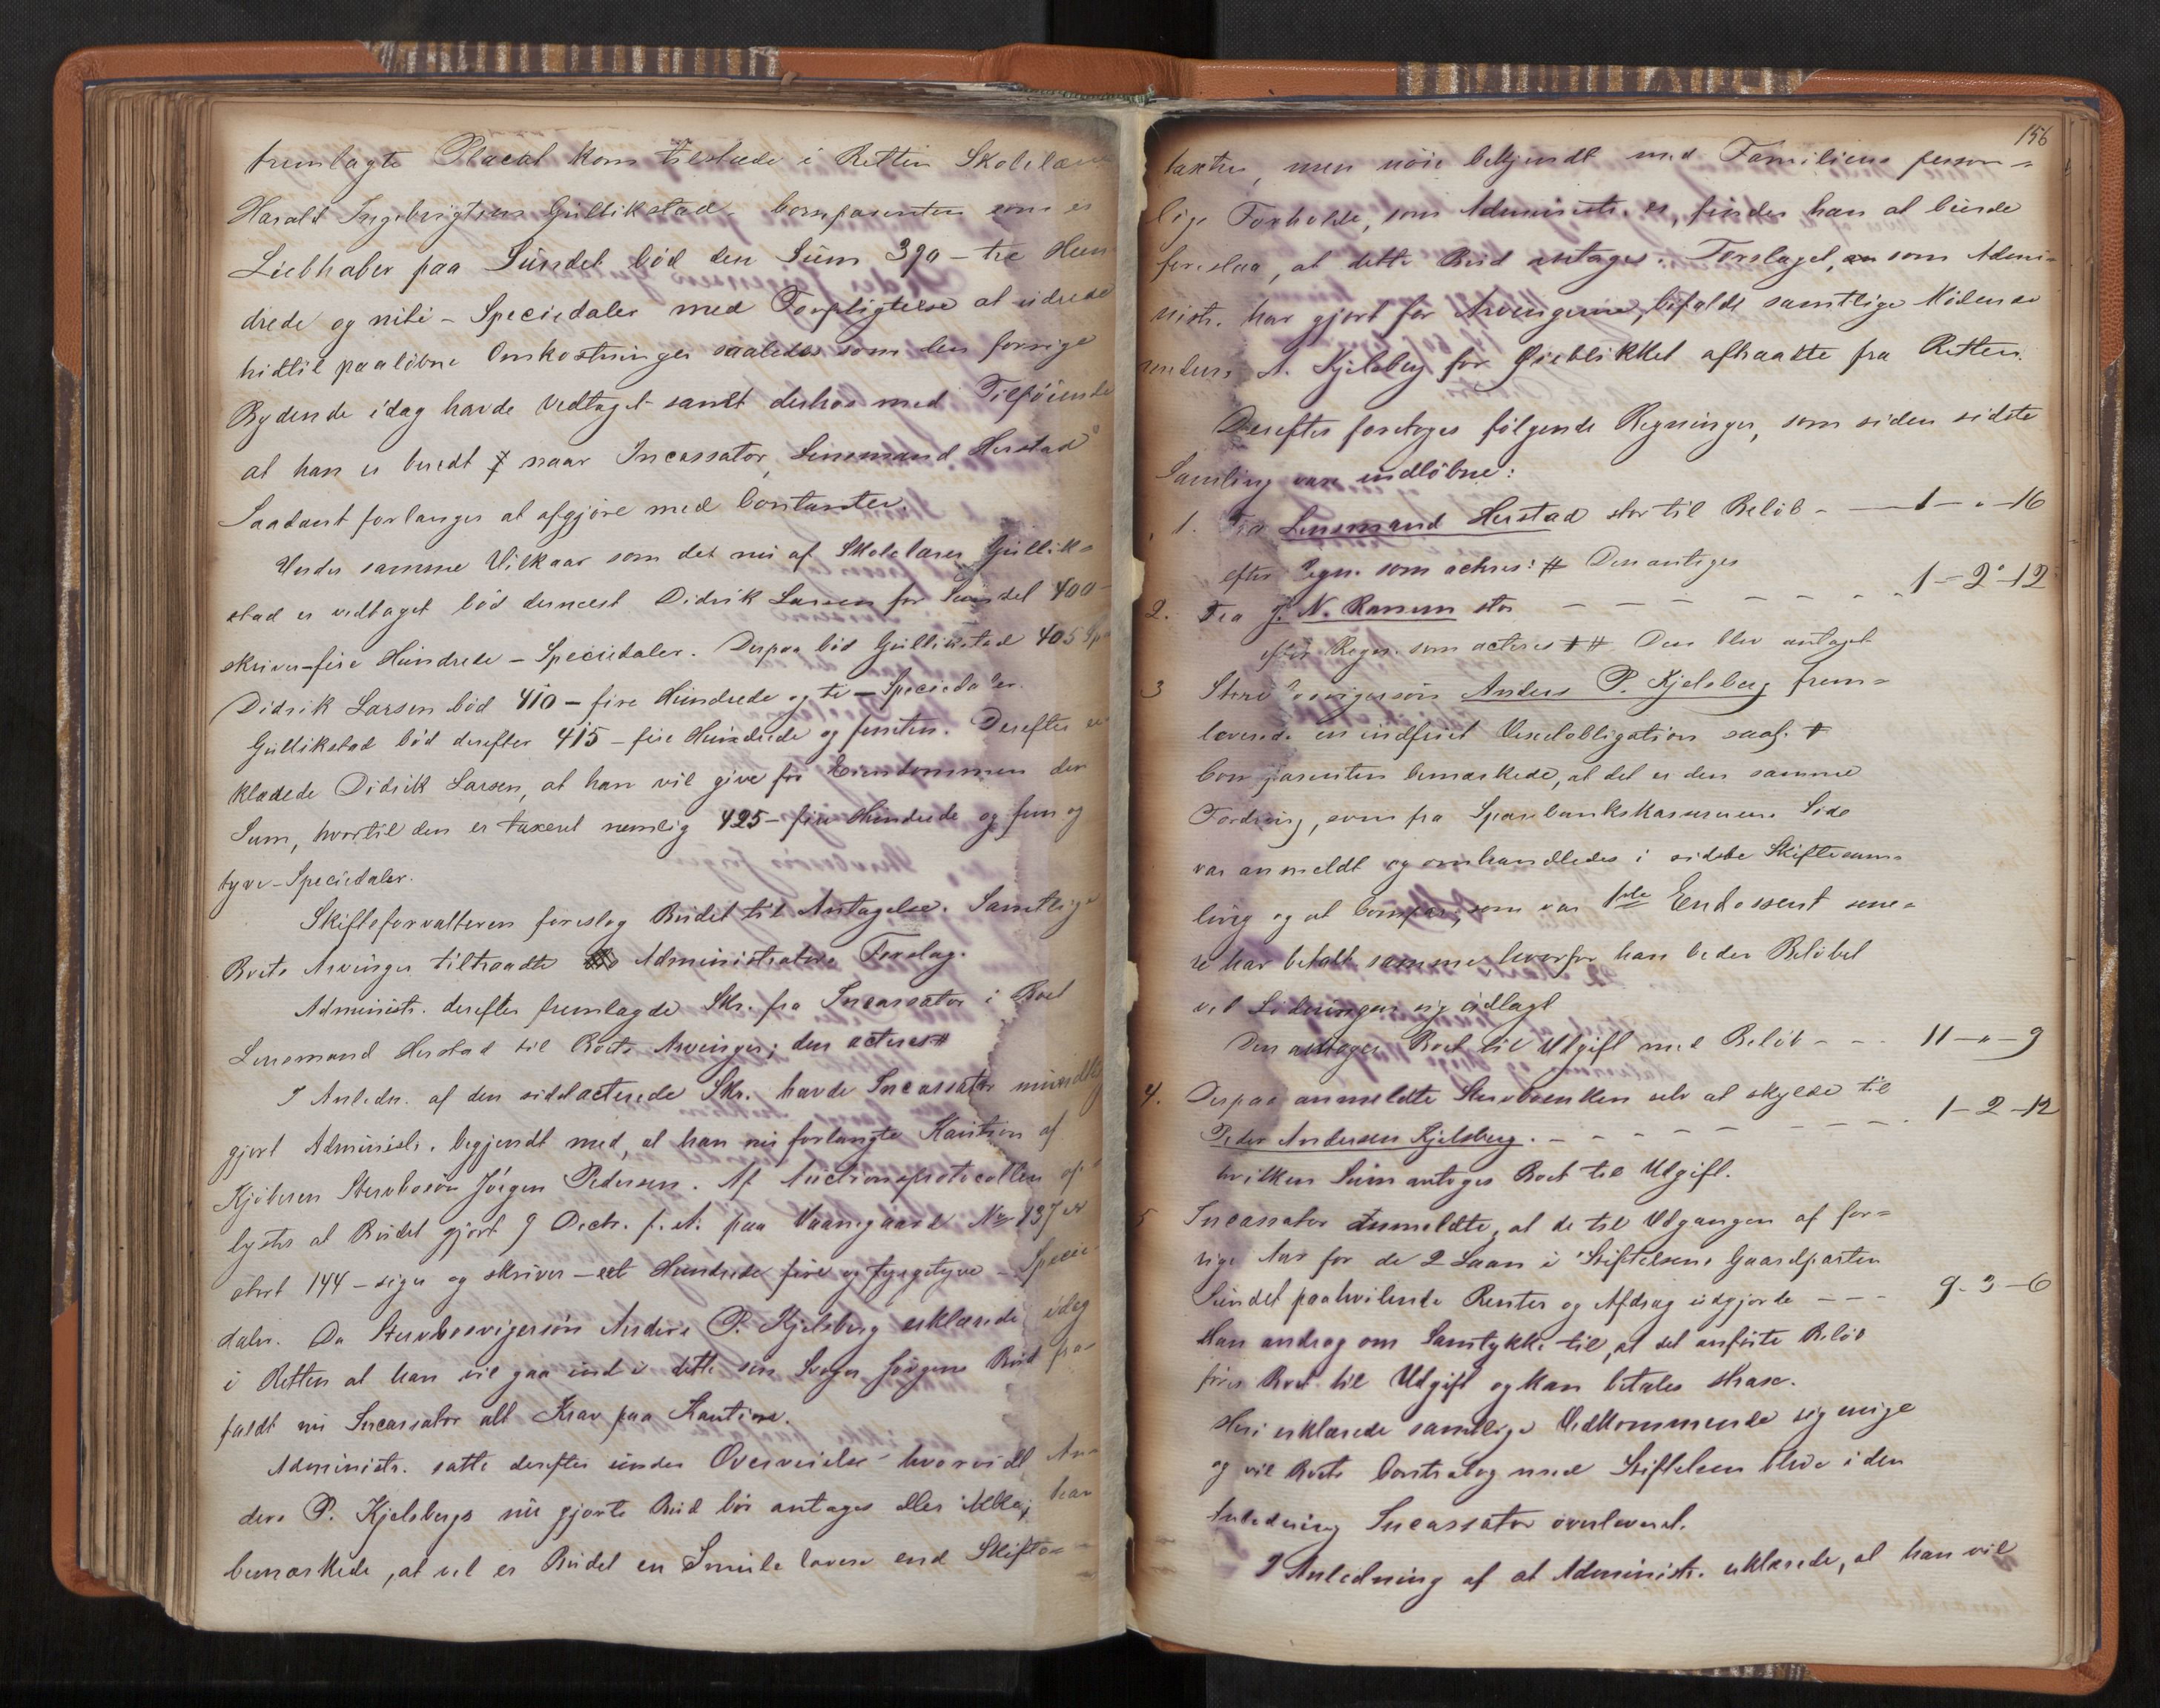 fremlagte Placat kom tilstæde i Retten Skolelærer
Harald Ingebrigtsen Gullikstad. Comparenten som er
Liebhaber paa Sundet bød den Sum 390 – tre Hun-
drede og niti – Speciedaler med Forpligtelse at udrede
hidtil paaløbne Omkostninger saaledes som den forrige
Bydende idag havde vedtaget samt derhos med Tilføiende
at han er beredt naar Incassator, Lensmand Herstad
Saadant forlanger at afgjøre med Contanter.
Under samme Vilkaar som det nu af Skolelærer Gullik-
stad er vedtaget bød dernæst Didrik Larsen for Sundet 400 –
skriver – fire Hundrede – Speciedaler. Derpaa bød Gullikstad 405 Sp
Didrik Larsen bød 410 – fire Hundrede og ti – Speciedaler.
Gullikstad bød derefter 415 – fire Hundrede og femten. Derefter er
klærede Didrik Larsen, at han vil give for Eiendommen den
Sum, hvortil den er taxeret nemlig 425 – fire Hundrede og fem og
tyve – Speciedaler.
Skifteforvalteren foreslog Budet til Antagelse. Samtlige
Boets Arvinger tiltraadte Administrators Forslag.
Administr. derefter fremlagde Skr. fra Incassator i Boet
Lensmand Herstad til Boets Arvinger; den acteres #
I Anledn. af den sidstacterede Skr. havde Incassator mundtlig
gjort Administr. begjendt med, at han nu forlangte Kaution af
Kjøberen Stervbosøn Jørgen Pedersen. Af Auctionsprotocollen op-
lystes at Budet gjort 9 Decbr. f. A. paa Vaaningaard No 137 er
stort 144 – siger og skriver – et Hundrede fire og fyrgetyve – Specie-
daler. Da Stervbosvigersøn Anders P. Kjelsberg erklærede idag
i Retten at han vil gaa ind i dette sin Svoger Jørgens Bud fra-
faldt nu Incassator alt Krav paa Kaution.
Administr. satte derefter under Overveielse hvorvidt An-
ders P. Kjelsbergs nu gjorte Bud bør antages eller ikke; han
bemærkede, at vel er Budet en Smule lavere end Skifte-
156
taxten, men nøie bekjendt med Familiens person-
lige Forholde, som Administr. er, finder han at burde
foreslaa, at dette Bud antages. Forslaget, som Admi-
nistr. har gjort for Arvingerne, bifaldt samtlige Mødende
undtagen A. Kjelsberg for Øieblikket aftraadte fra Retten.
Derefter foretoges følgende Regninger, som siden sidste
Samling vare indløbne:
1. Fra Lensmand Herstad stor til Beløb – 1 – " – 16
efter Regn. som acteres: # Den antages
2. Fra J. N. Ramm stor – – – – 1 – 2 – 12
efter Regn. som acteres # # Den blev antaget
3 Stervbosvigersøn Anders P. Kjelsberg frem-
leverede en indfriet Vexelobligation saal. #
Comparenten bemærkede, at det er den samme
Fordring, som fra Sparebankskassererens Side
var anmeldt og omhandledes i sidste Skiftesam-
ling og at Compar., som var 1ste Endossent sene-
re har betalt samme, hvorfor han beder Beløbet
ved Lodningen sig udlagt
Den antoges Boet til Udgift med Beløb – – 11 – " – 9
4. Derpaa anmeldte Stervboenken selv at skylde til
Peder Andersen Kjelsberg. – – – – 1 – 2 – 12
hvilken Sum antoges Boet til Udgift.
5 Incassator anmeldte, at de til Udgangen af for-
rige Aar for de 2 Laan i Stiftelsens Gaardparten
Sundet paahvilende Renter og Afdrag udgjorde – – – 9 – 3 – 6
Han androg om Samtykke til, at det anførte Beløb
føres Boet til Udgift og kan betales strax.
Heri erklærede samtlige Vedkommende sig enige
og vil Boets Contrabog med Stiftelsen blive i den
Anledning Incassator overleveret.
I Anledning af at Administr. erklærede, at han vil